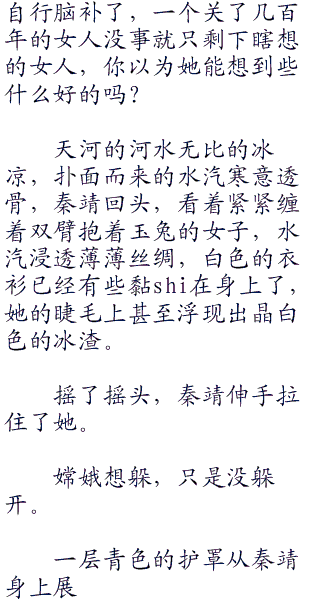 自行脑补了，一个关了几百
年的女人没事就只剩下瞎想
的女人，你以为她能想到些
什么好的吗？
天河的河水无比的冰
凉，扑面而来的水汽寒意透
骨，秦靖回头，看着紧紧缠
着双臂抱着玉兔的女子，水
汽浸透薄薄丝绸，白色的衣
衫已经有些黏shi在身上了，
她的睫毛上甚至浮现出晶白
色的冰渣。
摇了摇头，秦靖伸手拉
住了她。
嫦娥想躲，只是没躲
开。
一层青色的护罩从秦靖
身上展